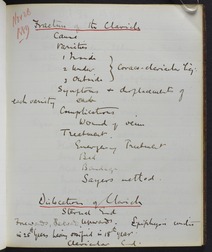 Fracture of the Clavicle
Cause
Varieties
1 Inside
2 Under
3 Outside
Coraco-clavicular lig.
Symptoms & displacements of
each variety
Complications
Wound of vein
Treatment
Emergency Treatment
Bed
Bandage
Sayers method.
Dislocation of Clavicle
Sternal End
Forwards, Backw. Upwards. Epiphysis unites
in 25th year being ossified in 18th year
Clavicular End.